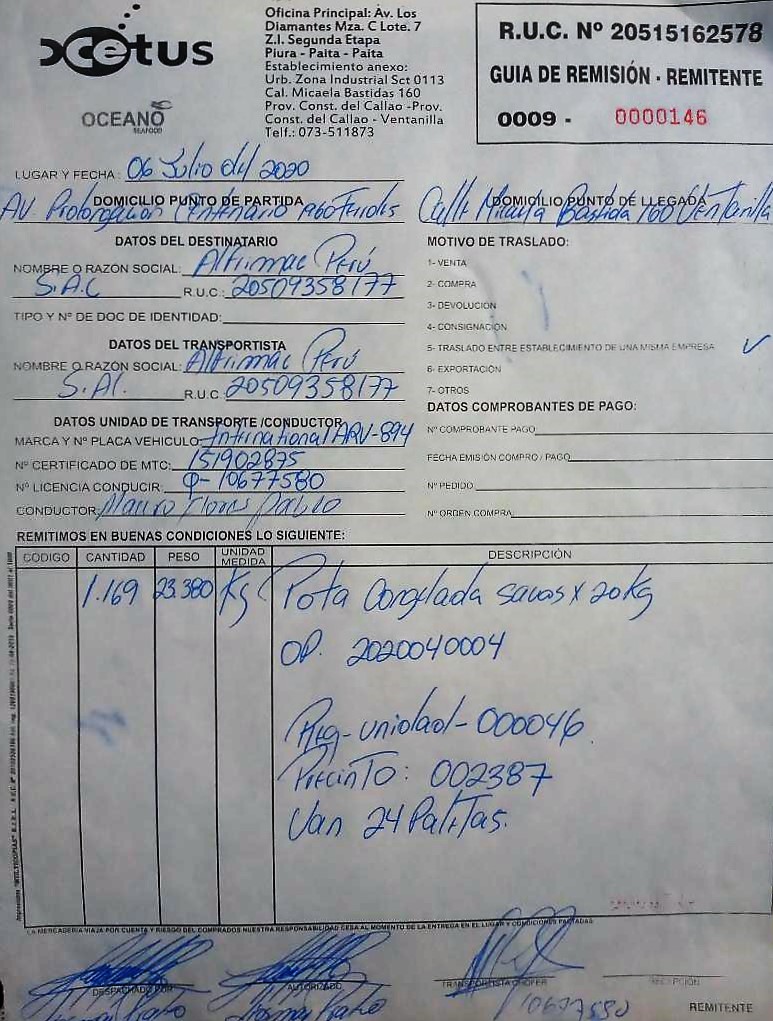 cetus
OCEANO
SEAFOOD
Oficina Principal: Av. Los
Diamantes Mza. C Lote. 7
Z.I. Segunda Etapa
Piura - Paita - Paita
Establecimiento anexo:
Urb. Zona Industrial Sct 0113
Cal. Micaela Bastidas 160
Prov. Const. del Callao -Prov.
Const. del Callao - Ventanilla
Telf.: 073-511873
R.U.C. Nº 20515162578
GUIA DE REMISIÓN - REMITENTE
0009 - 0000146
LUGAR Y FECHA: 06 Julio del 2020
DOMICILIO PUNTO DE PARTIDA
AV. Prolongacion Centenario 1960
DOMICILIO PUNTO DE LLEGADA
Calle Micaela Bastida 160 Ventanilla
DATOS DEL DESTINATARIO
NOMBRE O RAZÓN SOCIAL: Altrimac Perú
S.A.C R.U.C.: 20509358177
TIPO Y Nº DE DOC DE IDENTIDAD:
DATOS DEL TRANSPORTISTA
NOMBRE O RAZÓN SOCIAL: Altrimac Perú
R.U.C. 20509358177
DATOS UNIDAD DE TRANSPORTE /CONDUCTOR
MARCA Y Nº PLACA VEHICULO: International ARV-894
Nº CERTIFICADO DE MTC: 151902875
Nº LICENCIA CONDUCIR: Q-10677580
CONDUCTOR: Mauro Flores Pablo
MOTIVO DE TRASLADO:
1- VENTA
2- COMPRA
3- DEVOLUCION
4- CONSIGNACIÓN
5- TRASLADO ENTRE ESTABLECIMIENTO DE UNA MISMA EMPRESA ✓
6- EXPORTACIÓN
7- OTROS
DATOS COMPROBANTES DE PAGO:
Nº COMPROBANTE PAGO
FECHA EMISIÓN COMPRO / PAGO
Nº PEDIDO
Nº ORDEN COMPRA
REMITIMOS EN BUENAS CONDICIONES LO SIGUIENTE:
CÓDIGO CANTIDAD PESO UNIDAD MEDIDA DESCRIPCIÓN
1.169 23.380 Kg Pota Congelada sacos x 20kg
OP. 2020040004
Reg-unidad-000046
Precinto: 002387
Van 24 Paletas.
LA MERCADERIA VIAJA POR CUENTA Y RIESGO DEL COMPRADOS NUESTRA RESPONSABILIDAD CESA AL MOMENTO DE LA ENTREGA EN EL LUGAR Y CONDICIONES PACTADAS
DESPACHADO POR
AUTORIZADO
TRANSPORTISTA CHOFER
RECEPCIÓN
10677580
REMITENTE